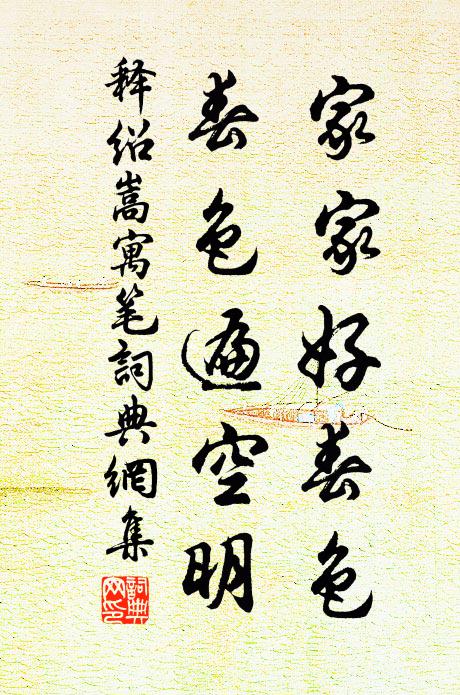 家家好春色
春色遍空明
释绍嵩寓笔詞典網集
詞典
网印